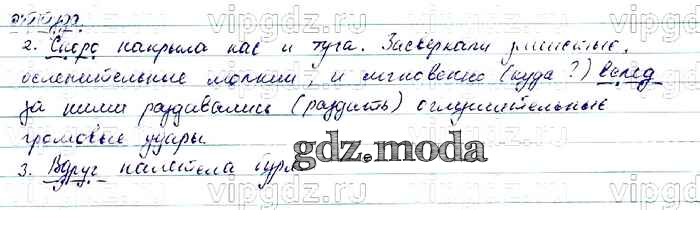 2. Скоро накрыла нас и туча. Засверкали
ослепительные молнии, и мгновенно (куда?) вслед
за ними раздавались (раздать) оглушительные
громовые удары.
3. Вдруг налетела буря
gdz.moda